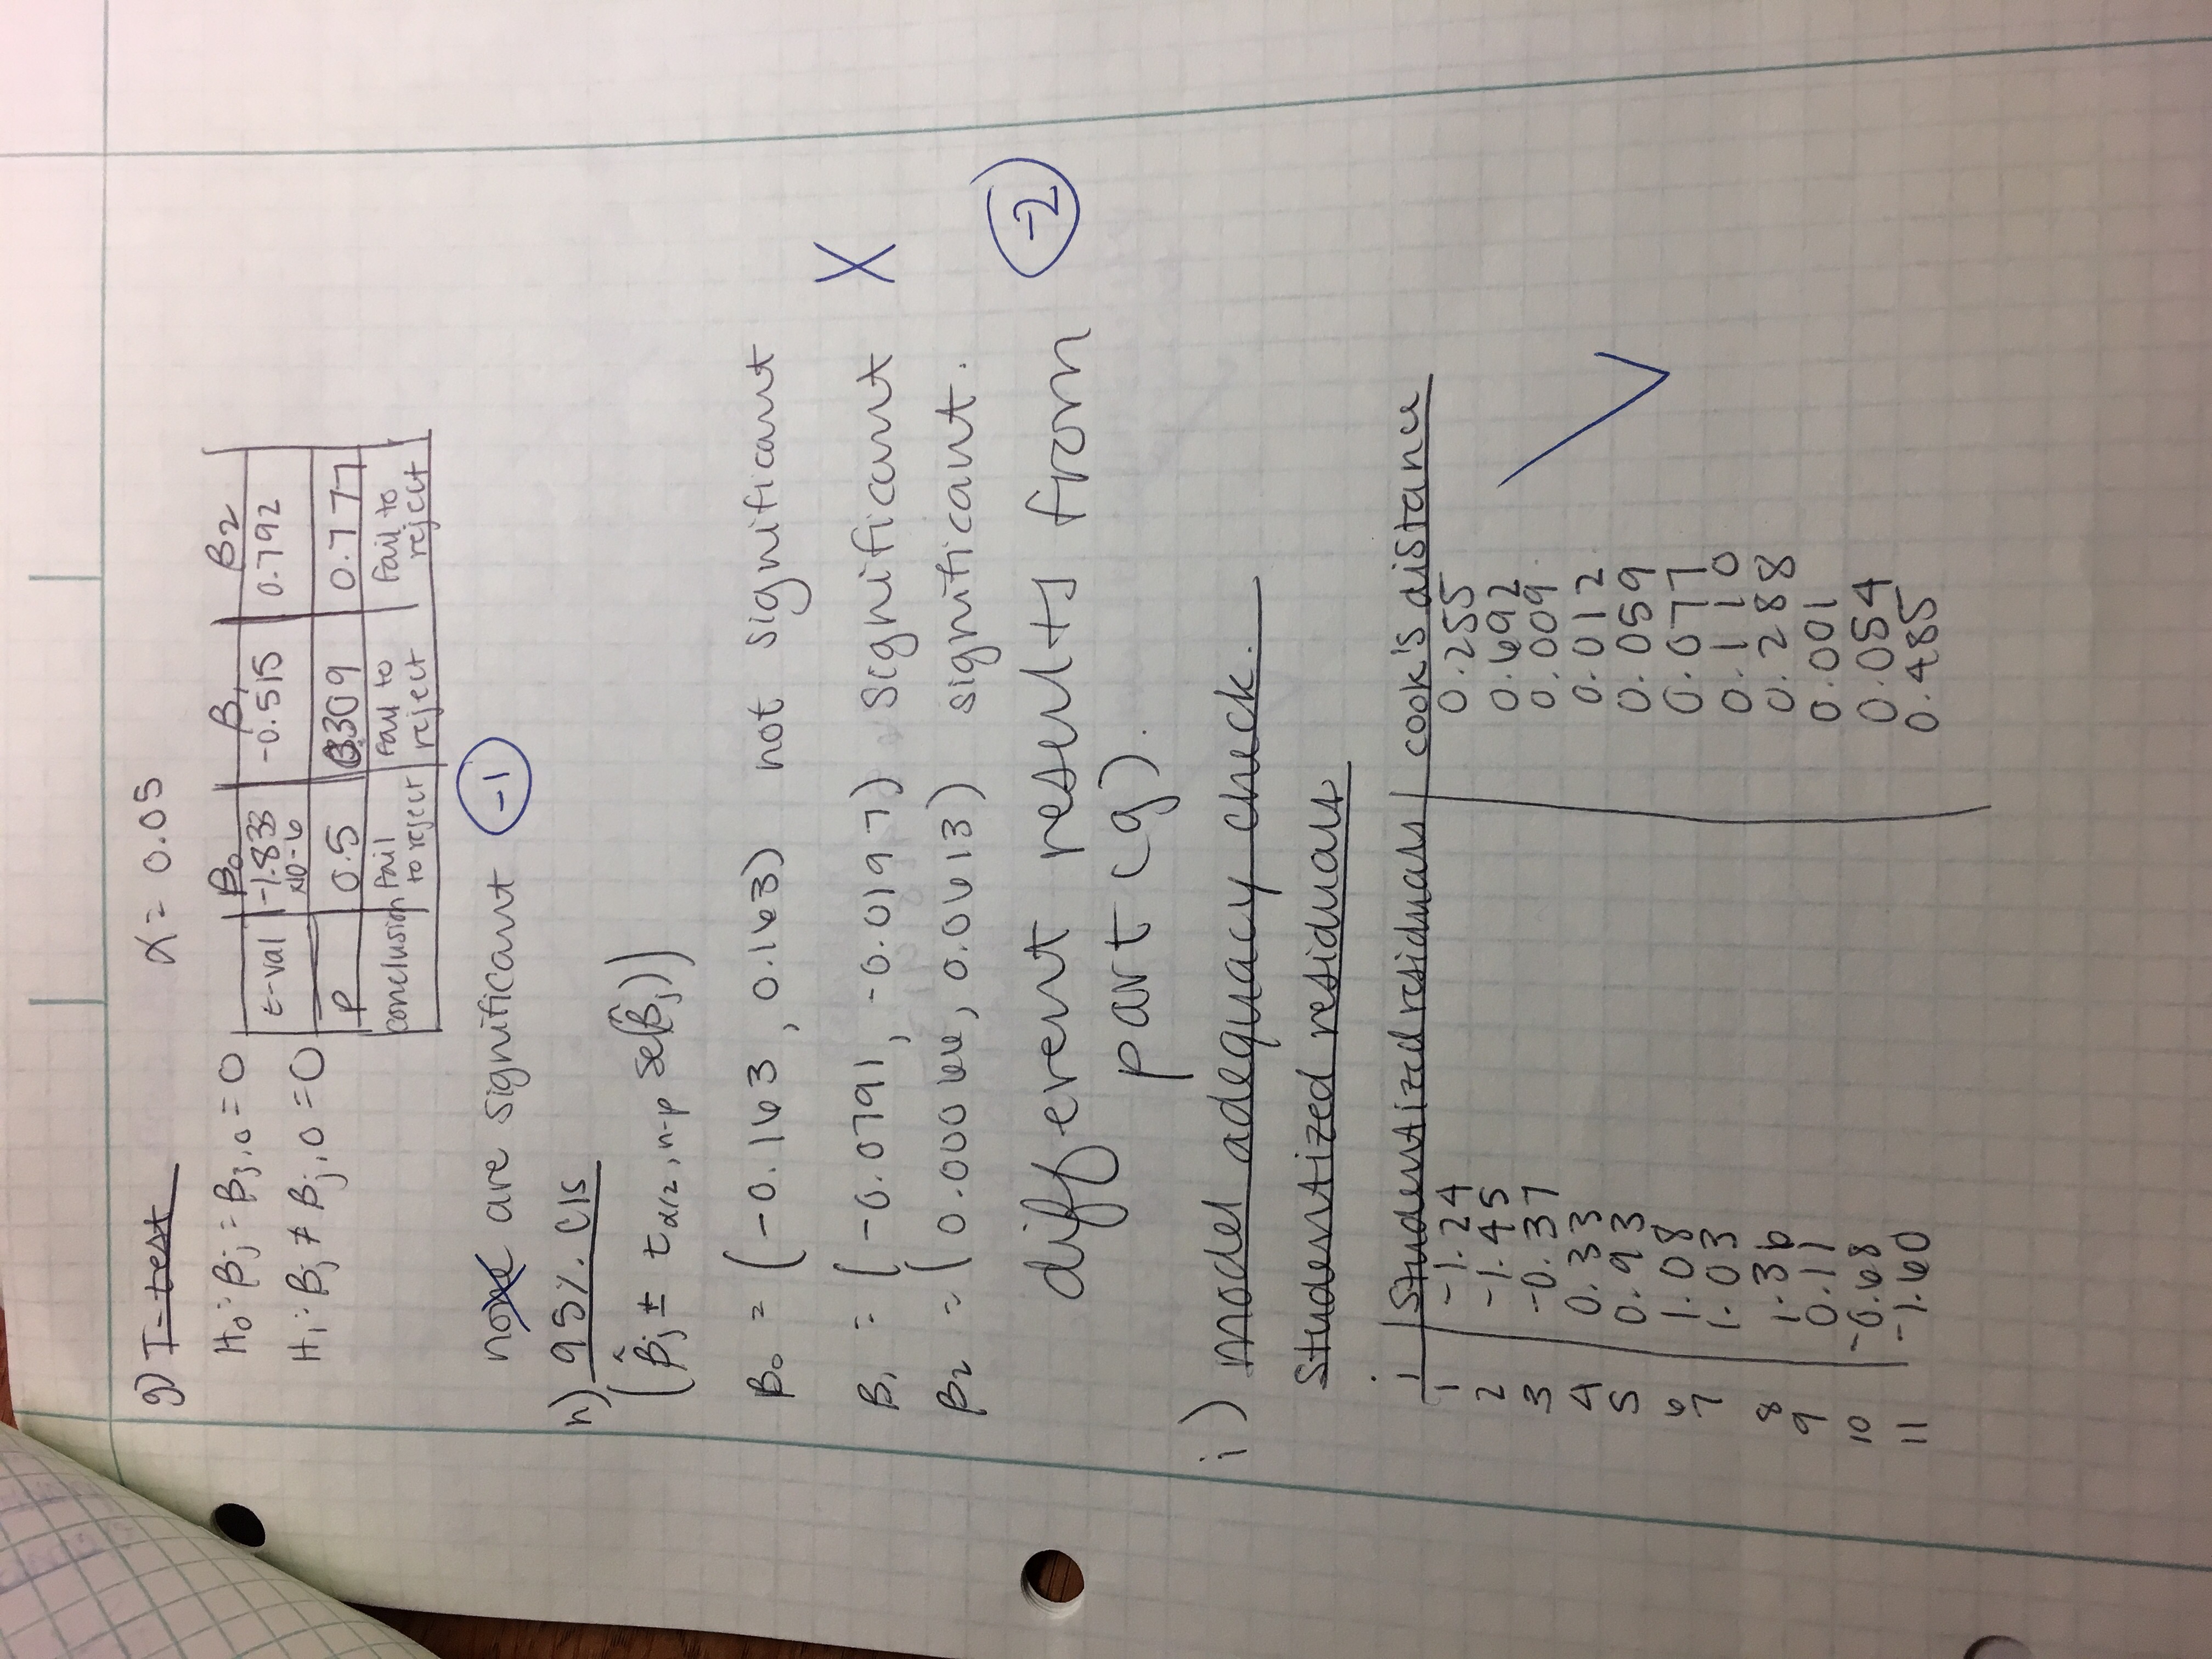 g) T-test α = 0.05
H₀: βj = βj,0 = 0
H₁: βj ≠ βj,0 = 0
β₀ β₁ β2
t-val -1.833 x10-6 -0.515 0.792
p 0.5 0.309 0.777
conclusion fail to reject fail to reject fail to reject
none are significant -1
h) 95% CIs
(β̂j ± tα/2, n-p se(β̂j))
β₀ = (-0.163, 0.163) not significant
β₁ = (-0.0791, -0.0197) significant X
β₂ = (0.00066, 0.0613) significant.
different results from -2
part (g).
i) model adequacy check.
Studentized residuals
i Studentized residuals cook's distance
1 -1.24 0.255
2 -1.45 0.692
3 -0.37 0.009
4 0.33 0.012
5 0.93 0.059
6 1.08 0.077
7 1.03 0.110
8 1.36 0.288
9 0.11 0.001
10 -0.68 0.054
11 -1.60 0.485